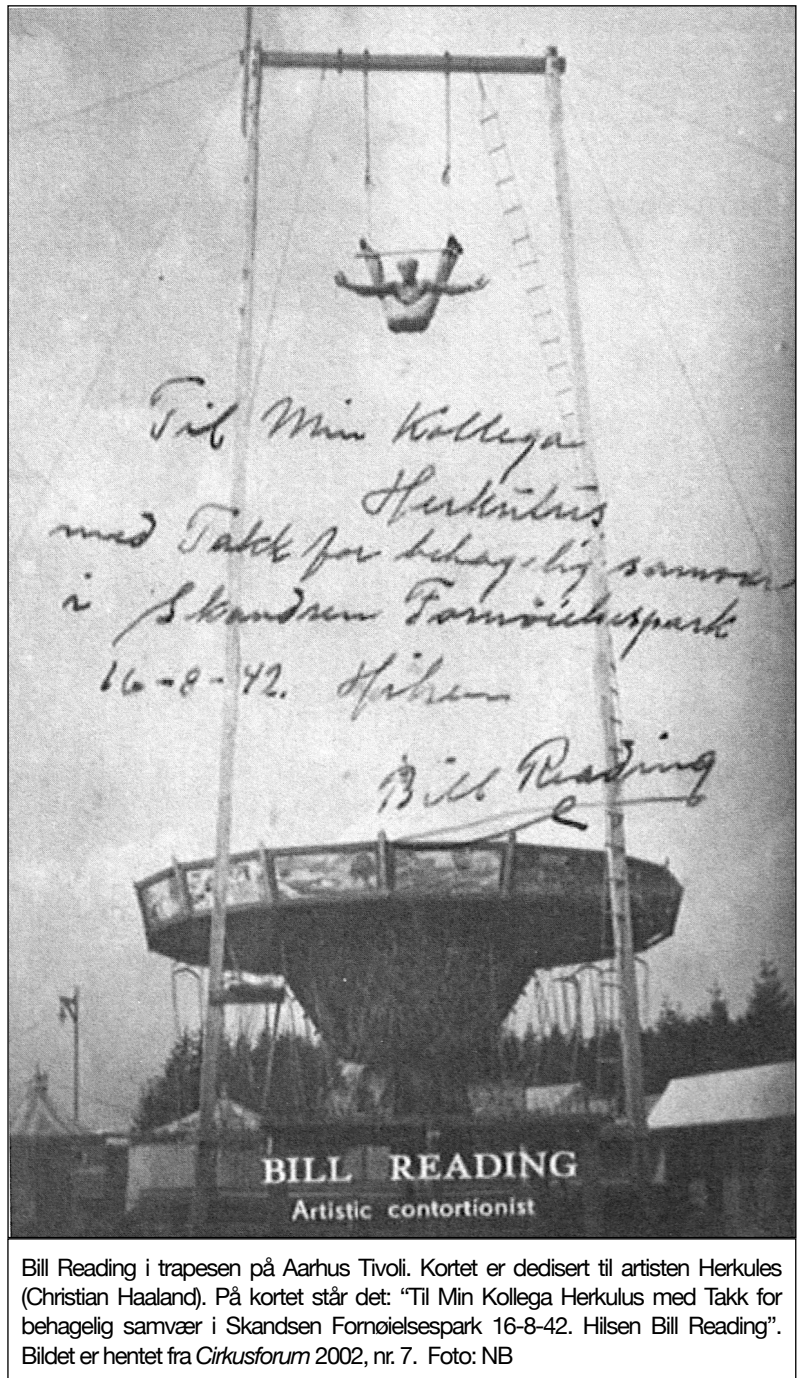 Til Min Kollega
Herkulus
med Takk for behagelig samvær
i Skandsen Fornøielsespark
16-8-42. Hilsen
Bill Reading
BILL READING
Artistic contortionist
Bill Reading i trapesen på Aarhus Tivoli. Kortet er dedisert til artisten Herkules
(Christian Haaland). På kortet står det: “Til Min Kollega Herkulus med Takk for
behagelig samvær i Skandsen Fornøielsespark 16-8-42. Hilsen Bill Reading”.
Bildet er hentet fra Cirkusforum 2002, nr. 7. Foto: NB